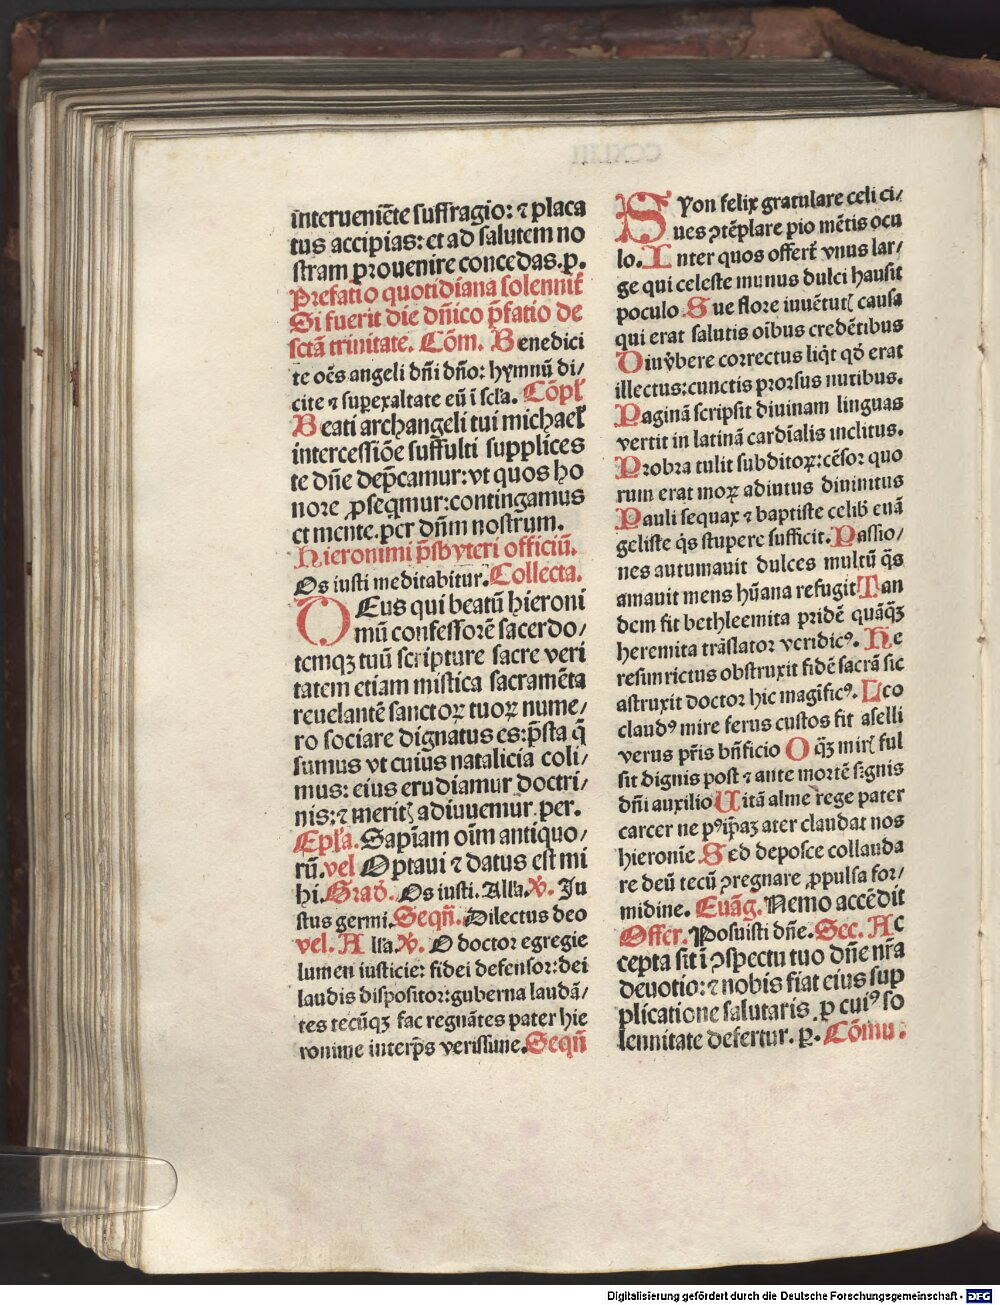 ĩnterueniẽte suffragio: ⁊ placa
tus accipias: et ad salutem no
stram prouenire concedas. p.
Prefatio quotidiana solennit̃
Si fuerit die dñico p̃fatio de
sctã trinitate. Cõm. Benedici
te oẽs angeli dñi dño: hymnũ di/
cite ⁊ superexaltate eũ ĩ scl'a. Cõpl'
Beati archangeli tui michael'
intercessiõe suffulti supplices
te dñe dep̃camur: vt quos ho
nore ꝓseq̃mur: contingamus
et mente. per dñm nostrum.
Hieronimi p̃sbyteri officiũ.
Os iusti meditabitur. Collecta.
DEus qui beatũ hieroni
mũ confessorẽ sacerdo/
temqꝫ tuũ scripture sacre veri
tatem etiam mistica sacramẽta
reuelantẽ sanctoꝝ tuoꝝ nume/
ro sociare dignatus es: p̃sta q̃
sumus vt cuius natalicia coli/
mus: eius erudiamur doctri/
nis: ⁊ meritꝭ adiuuemur. per.
Epl'a. Sapiam oĩm antiquo/
rũ. vel Optaui ⁊ datus est mi
hi. Grad'. Os iusti. Alla. V̓. Ju
stus germi. Seqñ. Dilectus deo
vel. Alla. V̓. O doctor egregie
lumen iusticie: fidei defensor: dei
laudis dispositor: guberna laudã/
tes tecũqꝫ fac regnãtes pater hie
ronime interp̃s verissime. Seqñ
SYon felix gratulare celi ci/
ues ꝯtẽplare pio mẽtis ocu
lo. Inter quos offert' vnus lar/
ge qui celeste munus dulci hausit
poculo Sue flore iuuẽtutꝭ causa
qui erat salutis oibus credẽtibus
Diu v̓bere correctus liq̃t qd' erat
illectus: cunctis prorsus nutibus.
Paginã scripsit diuinam linguas
vertit in latinã cardĩalis inclitus.
Probra tulit subditoꝝ: cẽsor quo
rum erat moꝝ adiutus diuinitus
Pauli sequax ⁊ baptiste celib' euã
geliste q̃s stupere sufficit. Passio/
nes autumauit dulces multũ q̃s
amauit mens hũana refugit Tan
dem fit bethleemita pridẽ quãq̃ꝫ
heremita trãslator veridicꝰ. He
resim rictus obstruxit fidẽ sacrã sic
astruxit doctor hic magificꝰ. Leo
claudꝰ mire ferus custos fit aselli
verus pr̃is bñficio O q̃ꝫ mirꝭ ful
sit dignis post ⁊ ante mortẽ signis
dñi auxilio Uitã alme rege pater
carcer ne pꝰip̃aꝫ ater claudat nos
hieronie. Sed deposce collauda
re deũ tecũ ꝯregnare ꝓpulsa for/
midine. Euãg. Nemo accẽdit
Offer. Posuisti dñe. Sec. Ac
cepta sit ĩ ꝯspectu tuo dñe nr̃a
deuotio: ⁊ nobis fiat eius sup
plicatione salutaris. p cuiꝰ so
lennitate defertur. p. Cõmu.
Digitalisierung gefördert durch die Deutsche Forschungsgemeinschaft - DFG